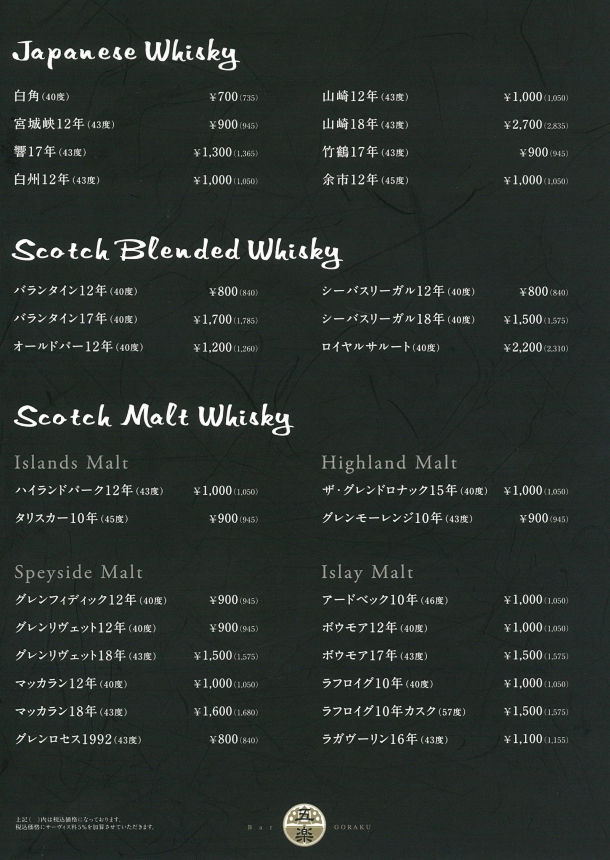 Japanese Whisky
白角(40度) ¥700(735)
宮城峡12年(43度) ¥900(945)
響17年(43度) ¥1,300(1,365)
白州12年(43度) ¥1,000(1,050)
山崎12年(43度) ¥1,000(1,050)
山崎18年(43度) ¥2,700(2,835)
竹鶴17年(43度) ¥900(945)
余市12年(45度) ¥1,000(1,050)
Scotch Blended Whisky
バランタイン12年(40度) ¥800(840)
バランタイン17年(40度) ¥1,700(1,785)
オールドパー12年(40度) ¥1,200(1,260)
シーバスリーガル12年(40度) ¥800(840)
シーバスリーガル18年(40度) ¥1,500(1,575)
ロイヤルサルート(40度) ¥2,200(2,310)
Scotch Malt Whisky
Islands Malt
ハイランドパーク12年(43度) ¥1,000(1,050)
タリスカー10年(45度) ¥900(945)
Highland Malt
ザ・グレンドロナック15年(40度) ¥1,000(1,050)
グレンモーレンジ10年(43度) ¥900(945)
Speyside Malt
グレンフィディック12年(40度) ¥900(945)
グレンリヴェット12年(40度) ¥900(945)
グレンリヴェット18年(43度) ¥1,500(1,575)
マッカラン12年(40度) ¥1,000(1,050)
マッカラン18年(43度) ¥1,600(1,680)
グレンロセス1992(43度) ¥800(840)
Islay Malt
アードベック10年(46度) ¥1,000(1,050)
ボウモア12年(40度) ¥1,000(1,050)
ボウモア17年(43度) ¥1,500(1,575)
ラフロイグ10年(40度) ¥1,000(1,050)
ラフロイグ10年カスク(57度) ¥1,500(1,575)
ラガヴーリン16年(43度) ¥1,100(1,155)
上記( )内は税込価格になっております。
税込価格にサーヴィス料5%を加算させていただきます。
Bar 五楽 GORAKU